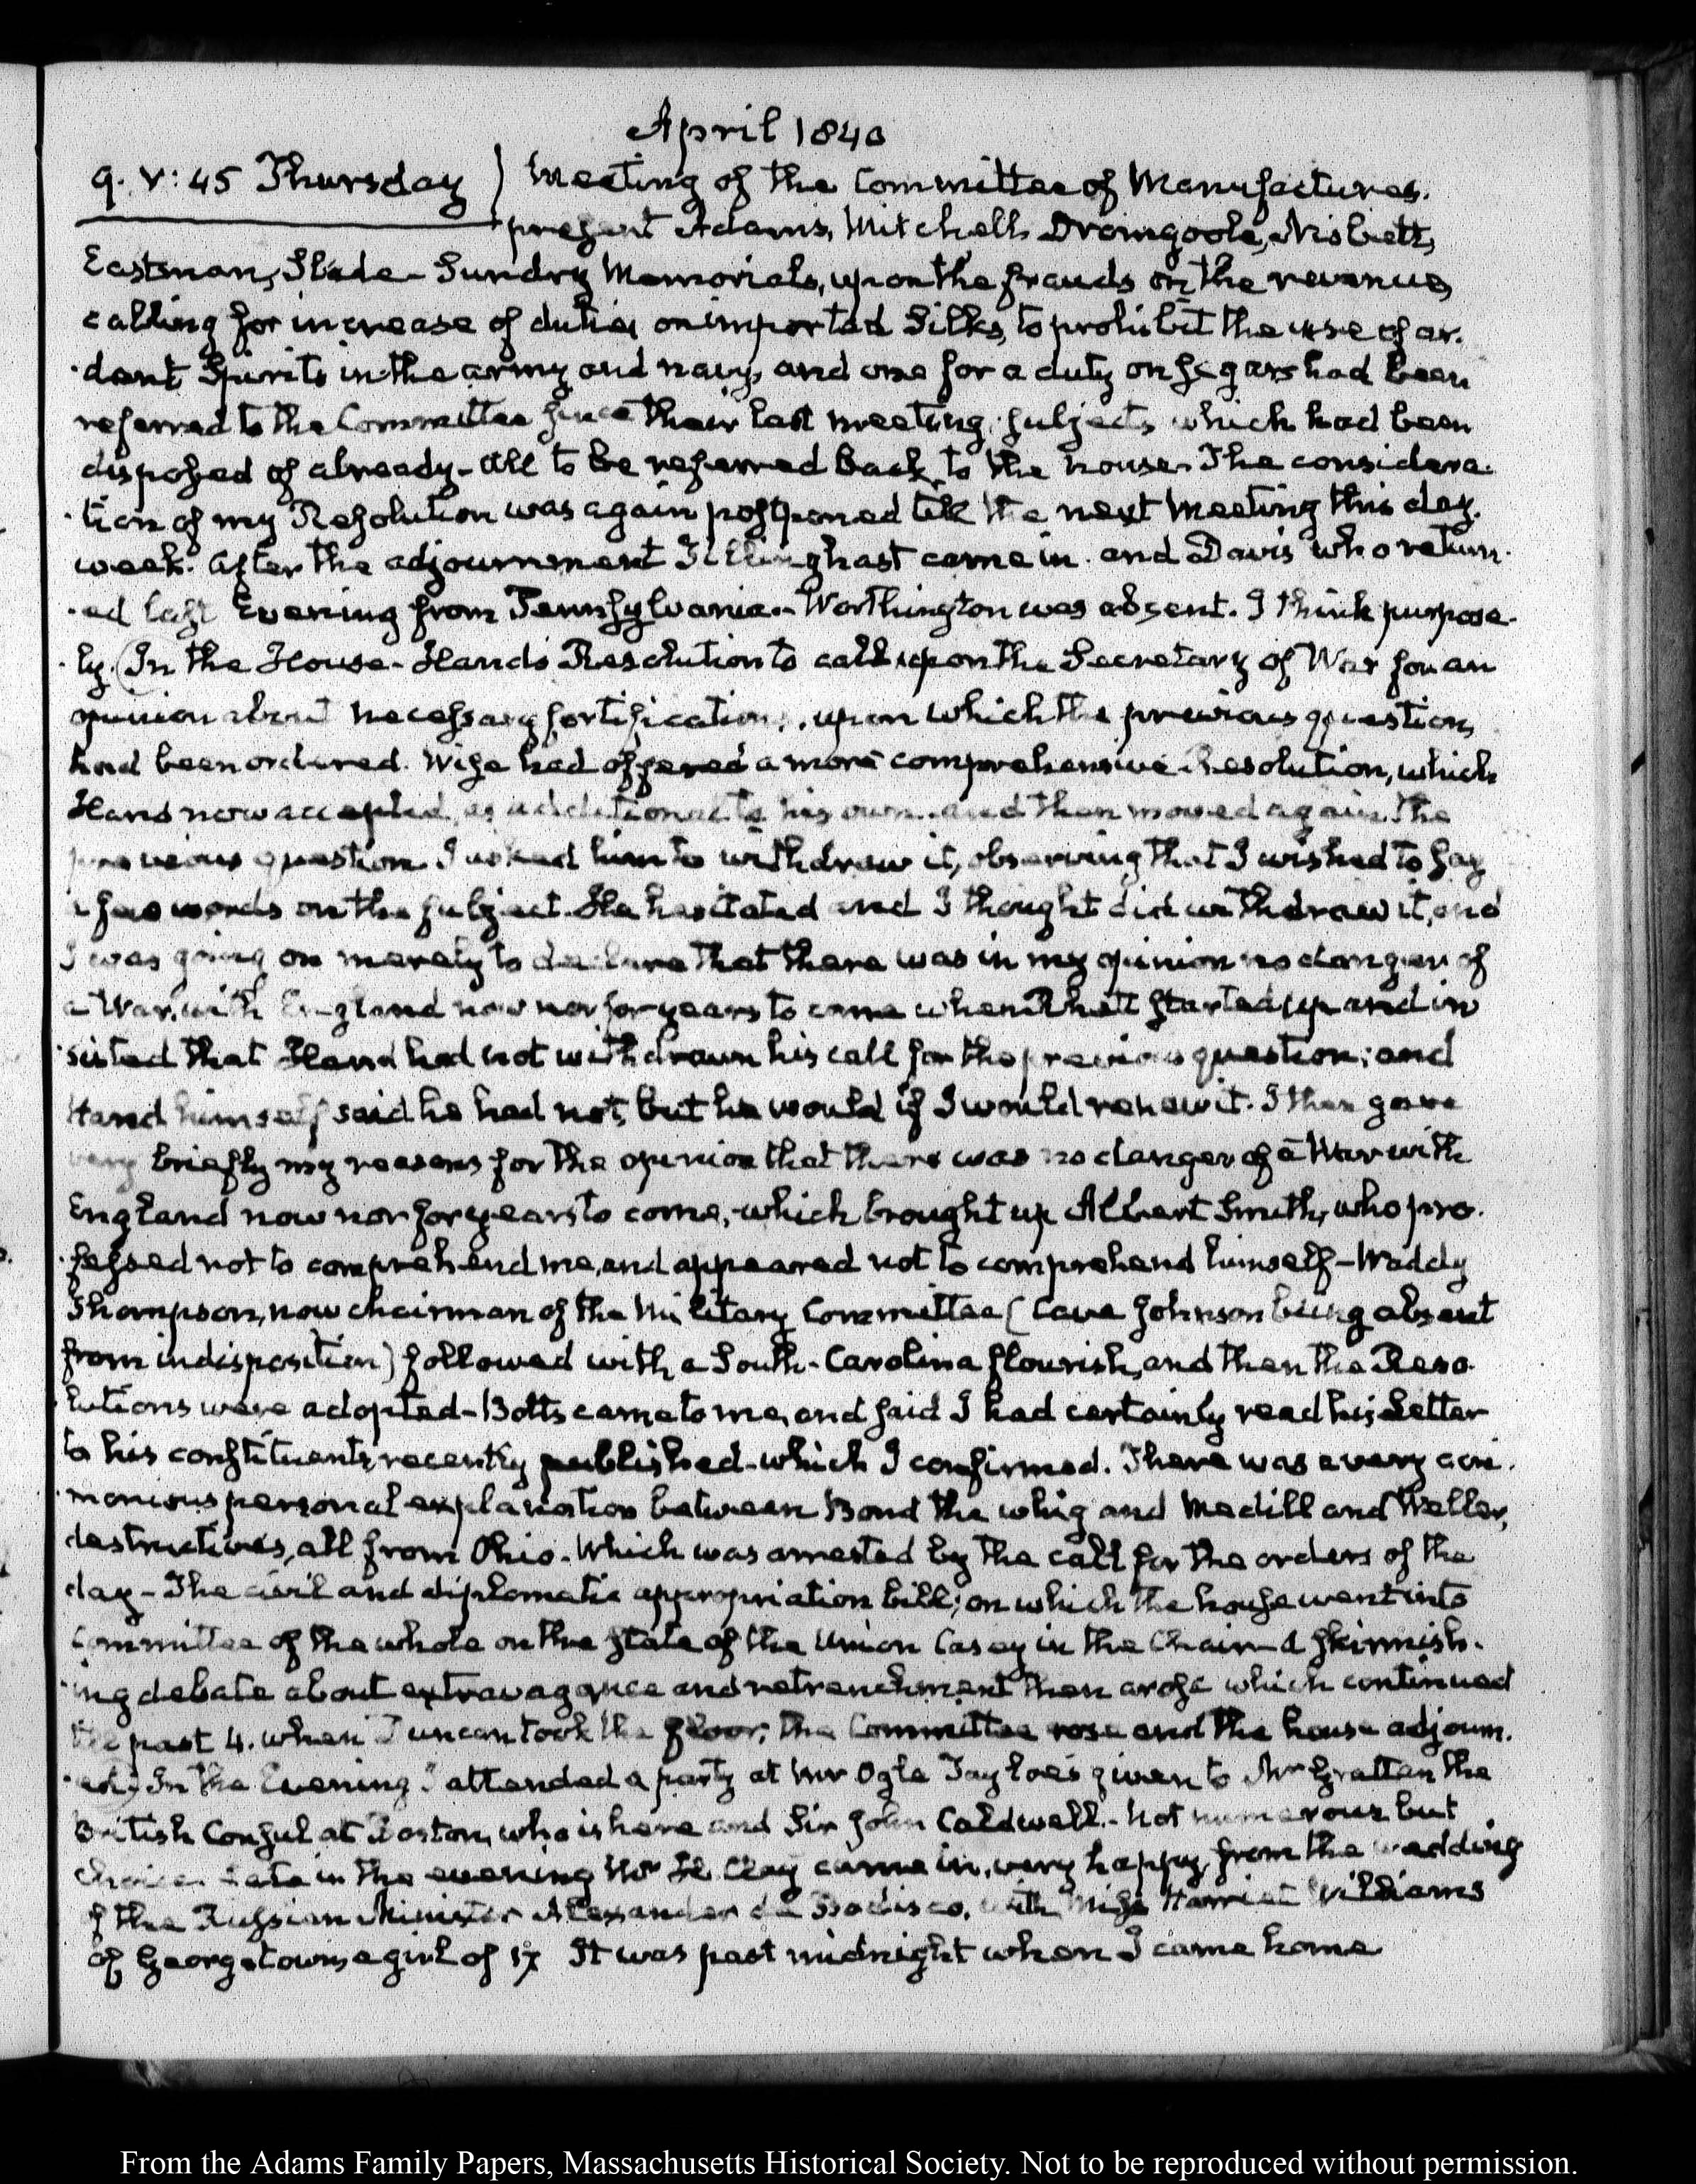 April 1840
9. V: 45 Thursday) Meeting of the Committee of Manufactures.
present Adams, Mitchell, Dromgoole, Nisbett,
Eastman, Slade - Sundry Memorials, upon the frauds on the revenue,
calling for increase of duties on imported Silks, to prohibit the use of ar-
-dent Spirits in the army and navy, and one for a duty on segars had been
referred to the Committee since their last meeting, subjects which had been
disposed of already - all to be referred back to the house. The considera-
-tion of my Resolution was again postponed till the next Meeting this day
week. After the adjournment Tillinghast came in. and Davis who return-
-ed last Evening from Pennsylvania. - Worthington was absent. I think purpose-
-ly. (In the House - Hand's Resolution to call upon the Secretary of War for an
opinion about necessary fortifications, upon which the previous question,
had been ordered. Wise had offered a more comprehensive Resolution, which
Hand now accepted, as additional to his own. and then moved again the
previous question. I asked him to withdraw it, observing that I wished to say
a few words on the subject. He hesitated and I thought did withdraw it, and
I was going on merely to declare that there was in my opinion no danger of
a War with England now nor for years to come when Rhett started up and in-
-sisted that Hand had not withdrawn his call for the previous question; and
Hand himself said he had not, but he would if I would renew it. I then gave
very briefly my reasons for the opinion that there was no danger of a War with
England now nor for years to come, which brought up Albert Smith, who pro-
-fessed not to comprehend me, and appeared not to comprehend himself - Waddy
Thompson, now chairman of the Military Committee (Cave Johnson being absent
from indisposition) followed with a South-Carolina flourish, and then the Reso-
-lutions were adopted - Botts came to me, and said I had certainly read his Letter
to his constituents recently published - which I confirmed. There was a very acri-
-monious personal explanation between Bond the whig and Medill and Weller,
destructives, all from Ohio. Which was arrested by the call for the orders of the
day - The civil and diplomatic appropriation bill; on which the house went into
Committee of the whole on the state of the Union Casey in the Chair - A skirmish-
-ing debate about extravagance and retrenchment then arose which continued
till past 4. when Duncan took the floor; the Committee rose and the house adjourn-
-ed.) In the Evening I attended a party at Mr Ogle Tayloe's given to Mr Grattan the
British Consul at Boston, who is here and Sir John Caldwell. - Not numerous but
choice. Late in the evening Mr H. Clay came in, very happy from the wedding
of the Russian Minister Alexander de Bodisco, with Miss Harriet Williams
of Georgetown, a girl of 17 It was past midnight when I came home
From the Adams Family Papers, Massachusetts Historical Society. Not to be reproduced without permission.